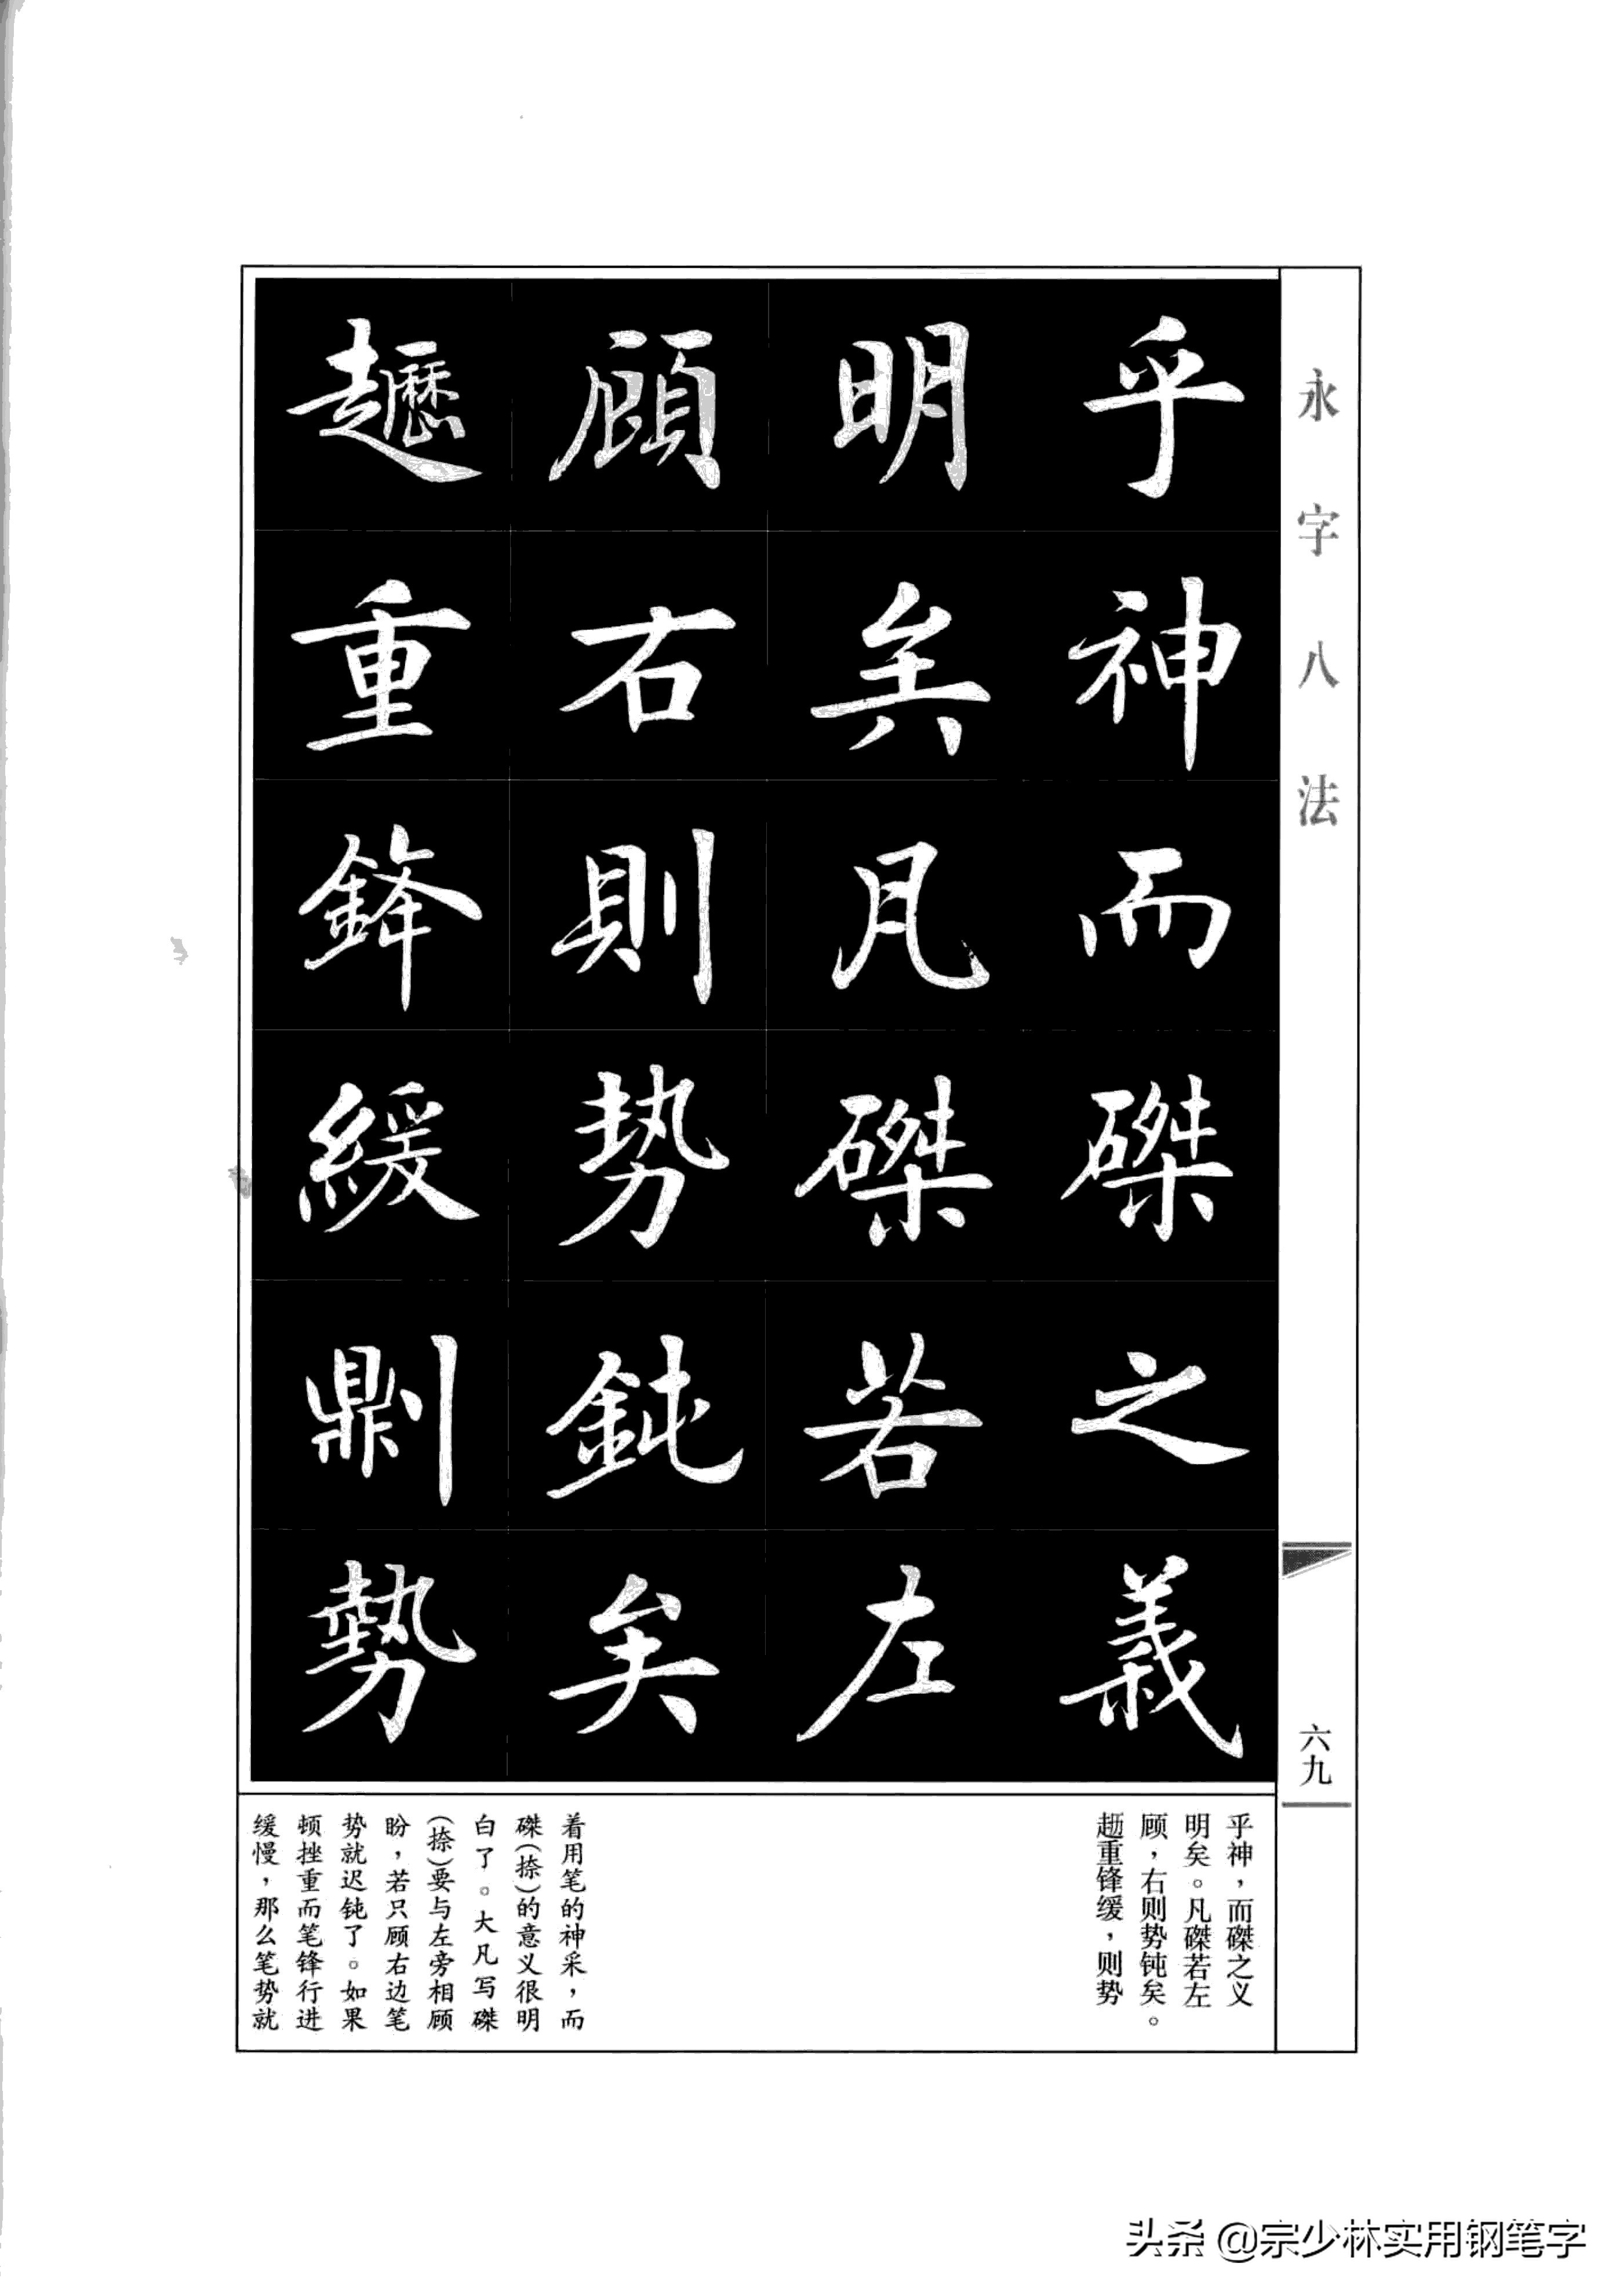 永字八法
六九
乎神而磔之義
明矣凡磔若左
顧右則勢鈍矣
重鋒緩勢
乎神，而磔之义
明矣。凡磔若左
顾，右则势钝矣。
重锋缓，则势
着用笔的神采，而
磔（捺）的意义很明
白了。大凡写磔
（捺）要与左旁相顾
盼，若只顾右边笔
势就迟钝了。如果
顿挫重而笔锋行进
缓慢，那么笔势就
头条 @宗少林实用钢笔字